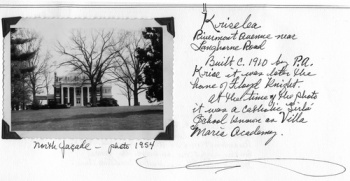 Kriselea
Rivermont Avenue near
Langhorne Road
Built C. 1910 by P.A.
Krise it was later the
home of Lloyd Knight.
At the time of the photo
it was a Catholic Girls'
School known as Villa
Maria Academy.
North façade – photo 1954